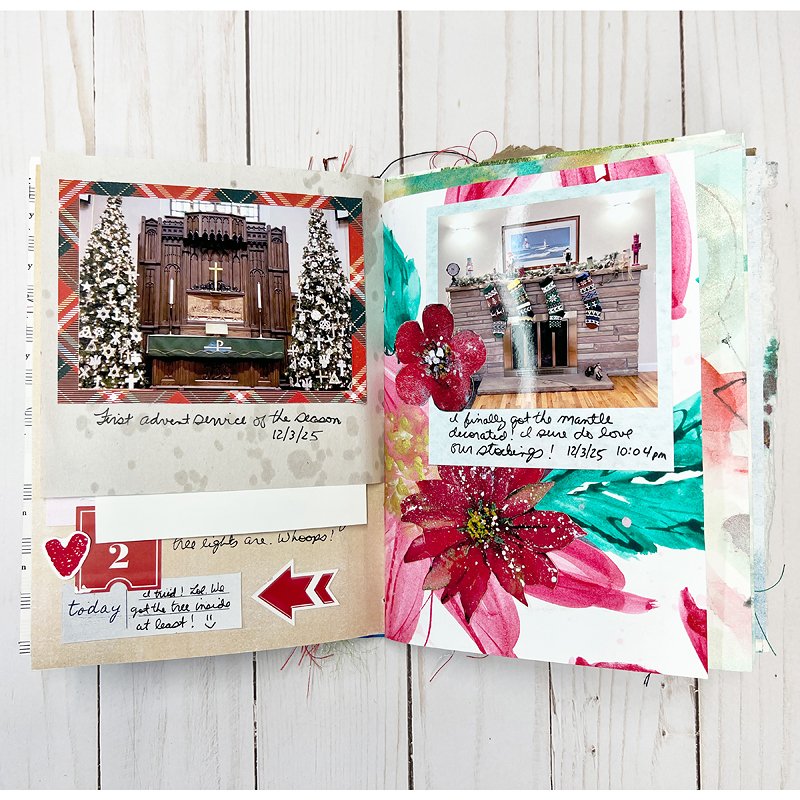 First advent service of the season
12/3/25
tree lights are. Whoops!
2
today
I tried! Lol. We
got the tree inside
at least!
I finally got the mantle
decorated! I sure do love
our stockings! 12/3/25 10:04pm